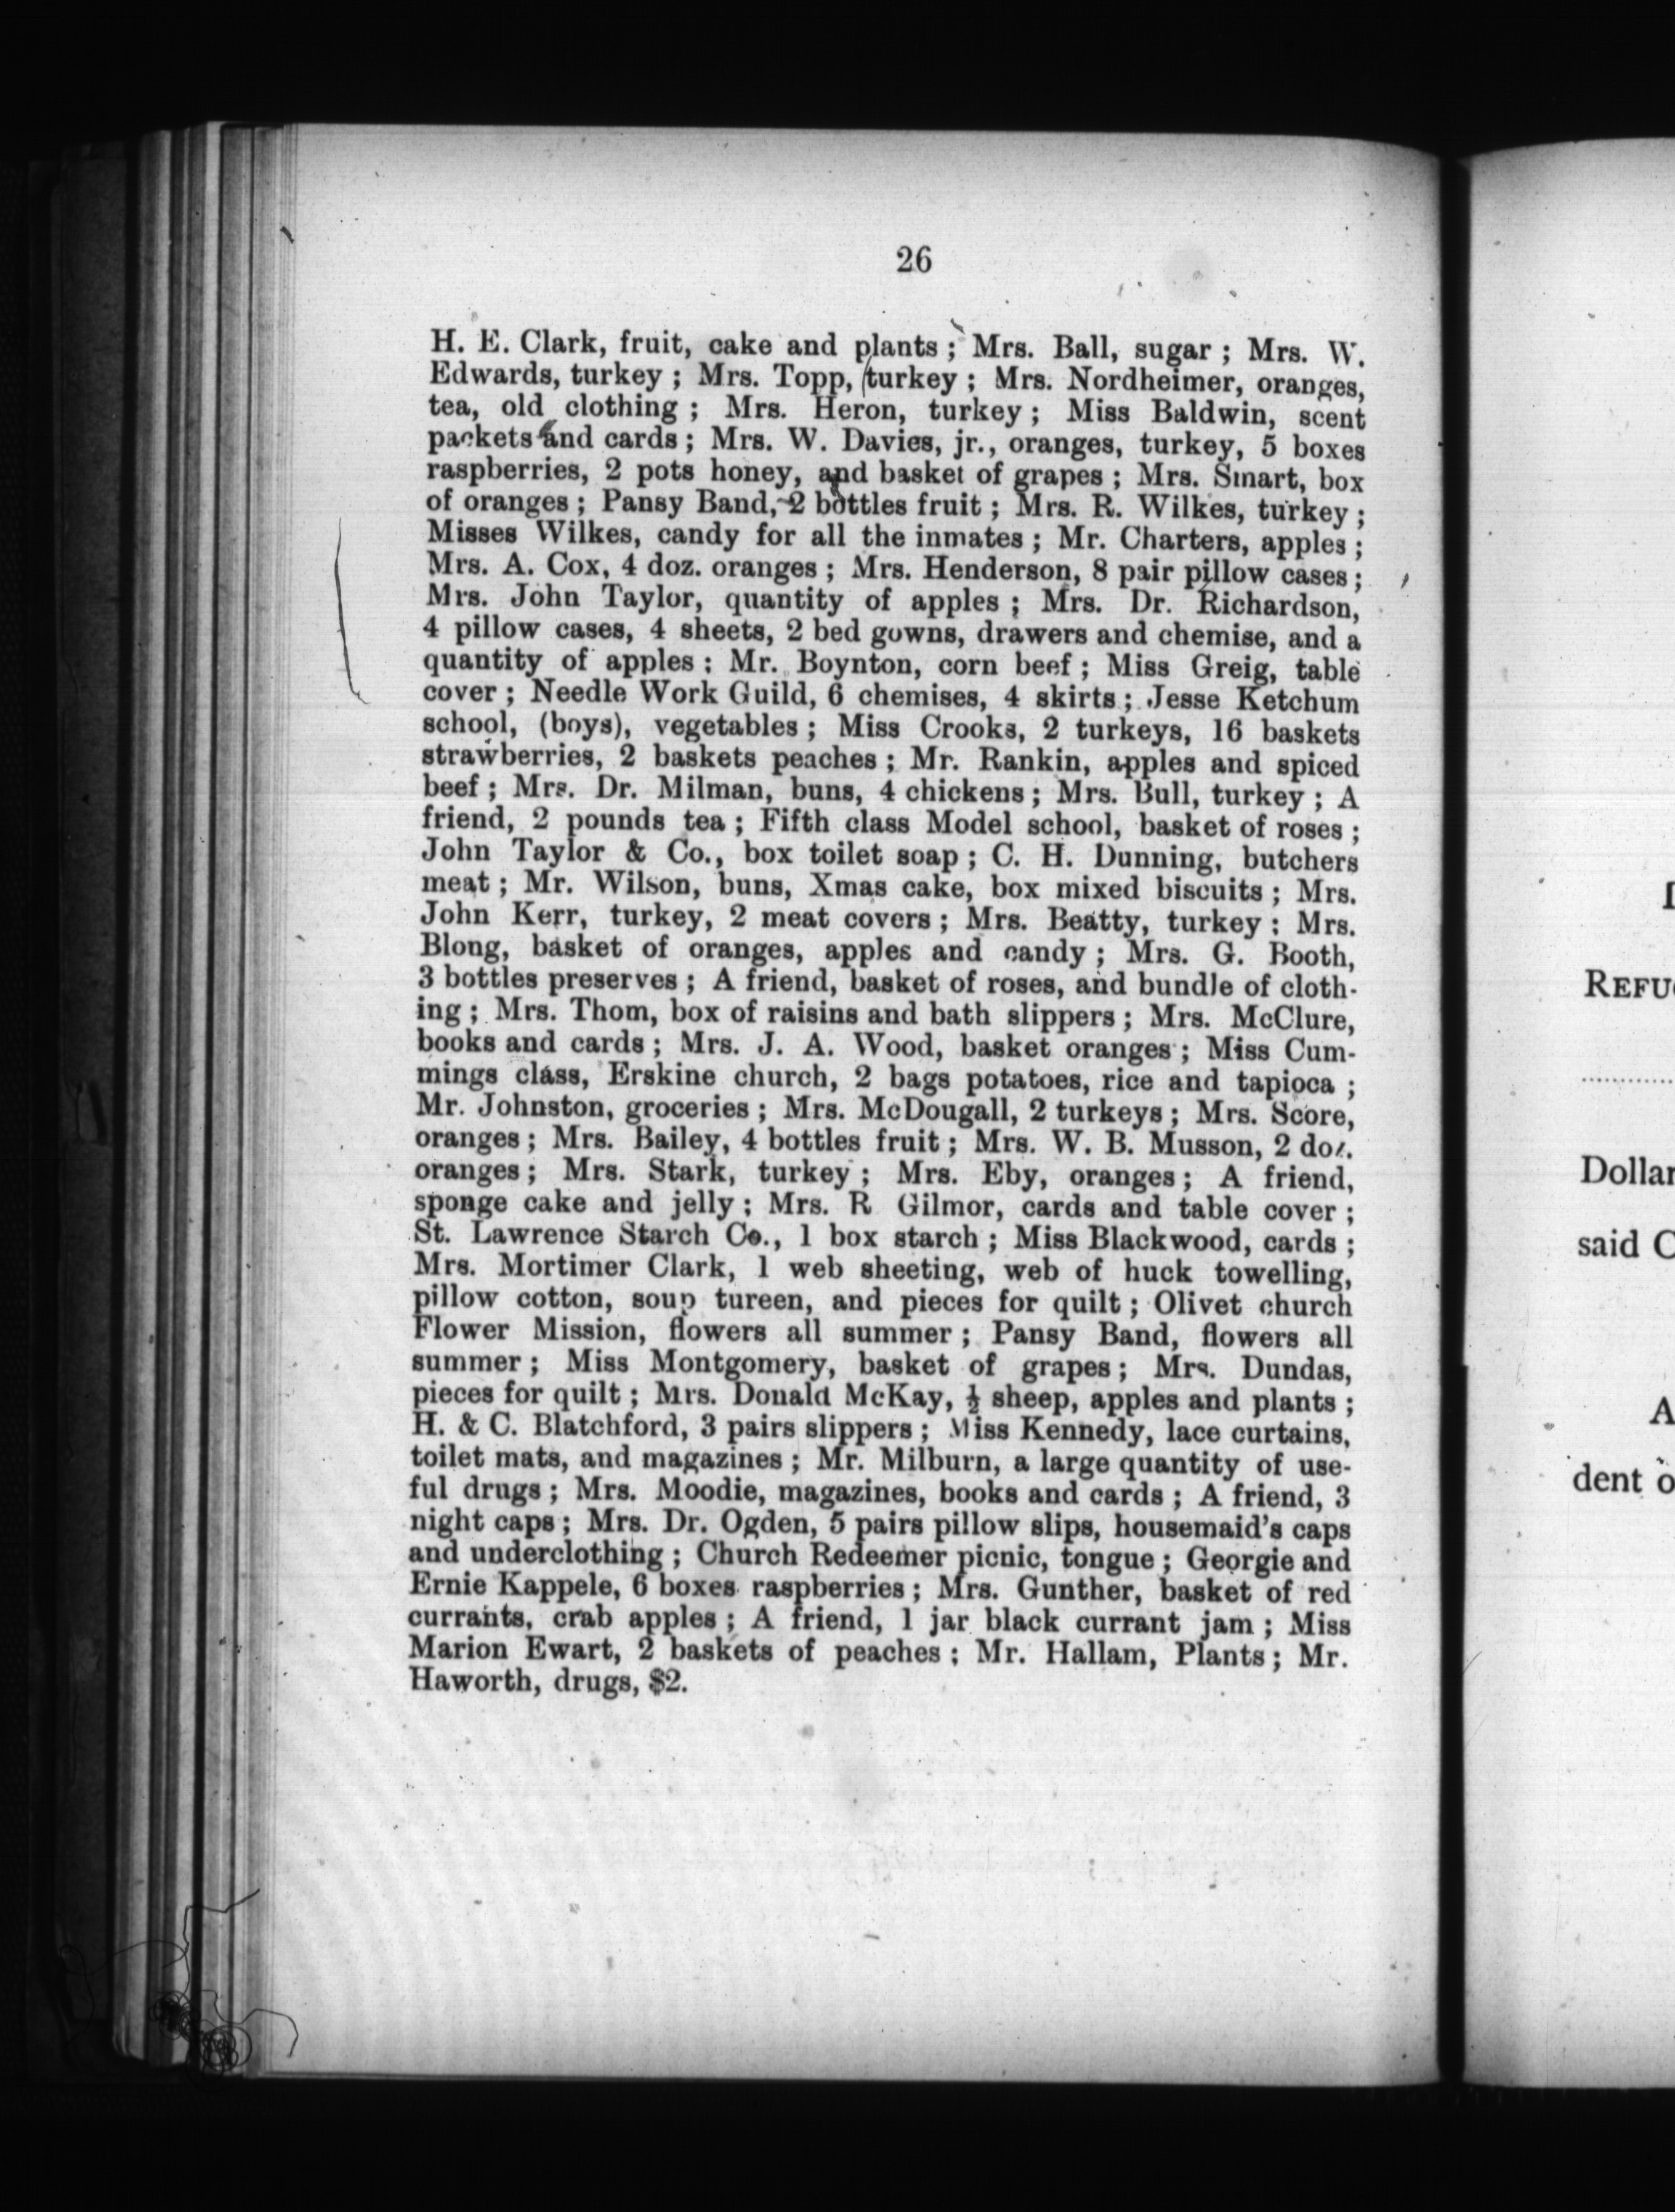 26
H. E. Clark, fruit, cake and plants ; Mrs. Ball, sugar ; Mrs. W.
Edwards, turkey ; Mrs. Topp, turkey ; Mrs. Nordheimer, oranges,
tea, old clothing ; Mrs. Heron, turkey ; Miss Baldwin, scent
packets and cards ; Mrs. W. Davies, jr., oranges, turkey, 5 boxes
raspberries, 2 pots honey, and basket of grapes ; Mrs. Smart, box
of oranges ; Pansy Band, 2 bottles fruit ; Mrs. R. Wilkes, turkey ;
Misses Wilkes, candy for all the inmates ; Mr. Charters, apples ;
Mrs. A. Cox, 4 doz. oranges ; Mrs. Henderson, 8 pair pillow cases ;
Mrs. John Taylor, quantity of apples ; Mrs. Dr. Richardson,
4 pillow cases, 4 sheets, 2 bed gowns, drawers and chemise, and a
quantity of apples : Mr. Boynton, corn beef ; Miss Greig, table
cover ; Needle Work Guild, 6 chemises, 4 skirts ; Jesse Ketchum
school, (boys), vegetables ; Miss Crooks, 2 turkeys, 16 baskets
strawberries, 2 baskets peaches ; Mr. Rankin, apples and spiced
beef ; Mrs. Dr. Milman, buns, 4 chickens ; Mrs. Bull, turkey ; A
friend, 2 pounds tea ; Fifth class Model school, basket of roses ;
John Taylor & Co., box toilet soap ; C. H. Dunning, butchers
meat ; Mr. Wilson, buns, Xmas cake, box mixed biscuits ; Mrs.
John Kerr, turkey, 2 meat covers ; Mrs. Beatty, turkey : Mrs.
Blong, basket of oranges, apples and candy ; Mrs. G. Booth,
3 bottles preserves ; A friend, basket of roses, and bundle of cloth-
ing ; Mrs. Thom, box of raisins and bath slippers ; Mrs. McClure,
books and cards ; Mrs. J. A. Wood, basket oranges ; Miss Cum-
mings class, Erskine church, 2 bags potatoes, rice and tapioca ;
Mr. Johnston, groceries ; Mrs. McDougall, 2 turkeys ; Mrs. Score,
oranges ; Mrs. Bailey, 4 bottles fruit ; Mrs. W. B. Musson, 2 doz.
oranges ; Mrs. Stark, turkey ; Mrs. Eby, oranges ; A friend,
sponge cake and jelly ; Mrs. R Gilmor, cards and table cover ;
St. Lawrence Starch Co., 1 box starch ; Miss Blackwood, cards ;
Mrs. Mortimer Clark, 1 web sheeting, web of huck towelling,
pillow cotton, soup tureen, and pieces for quilt ; Olivet church
Flower Mission, flowers all summer ; Pansy Band, flowers all
summer ; Miss Montgomery, basket of grapes ; Mrs. Dundas,
pieces for quilt ; Mrs. Donald McKay, ½ sheep, apples and plants ;
H. & C. Blatchford, 3 pairs slippers ; Miss Kennedy, lace curtains,
toilet mats, and magazines ; Mr. Milburn, a large quantity of use-
ful drugs ; Mrs. Moodie, magazines, books and cards ; A friend, 3
night caps ; Mrs. Dr. Ogden, 5 pairs pillow slips, housemaid's caps
and underclothing ; Church Redeemer picnic, tongue ; Georgie and
Ernie Kappele, 6 boxes raspberries ; Mrs. Gunther, basket of red
currants, crab apples ; A friend, 1 jar black currant jam ; Miss
Marion Ewart, 2 baskets of peaches ; Mr. Hallam, Plants ; Mr.
Haworth, drugs, $2.
Dollar
said
dent